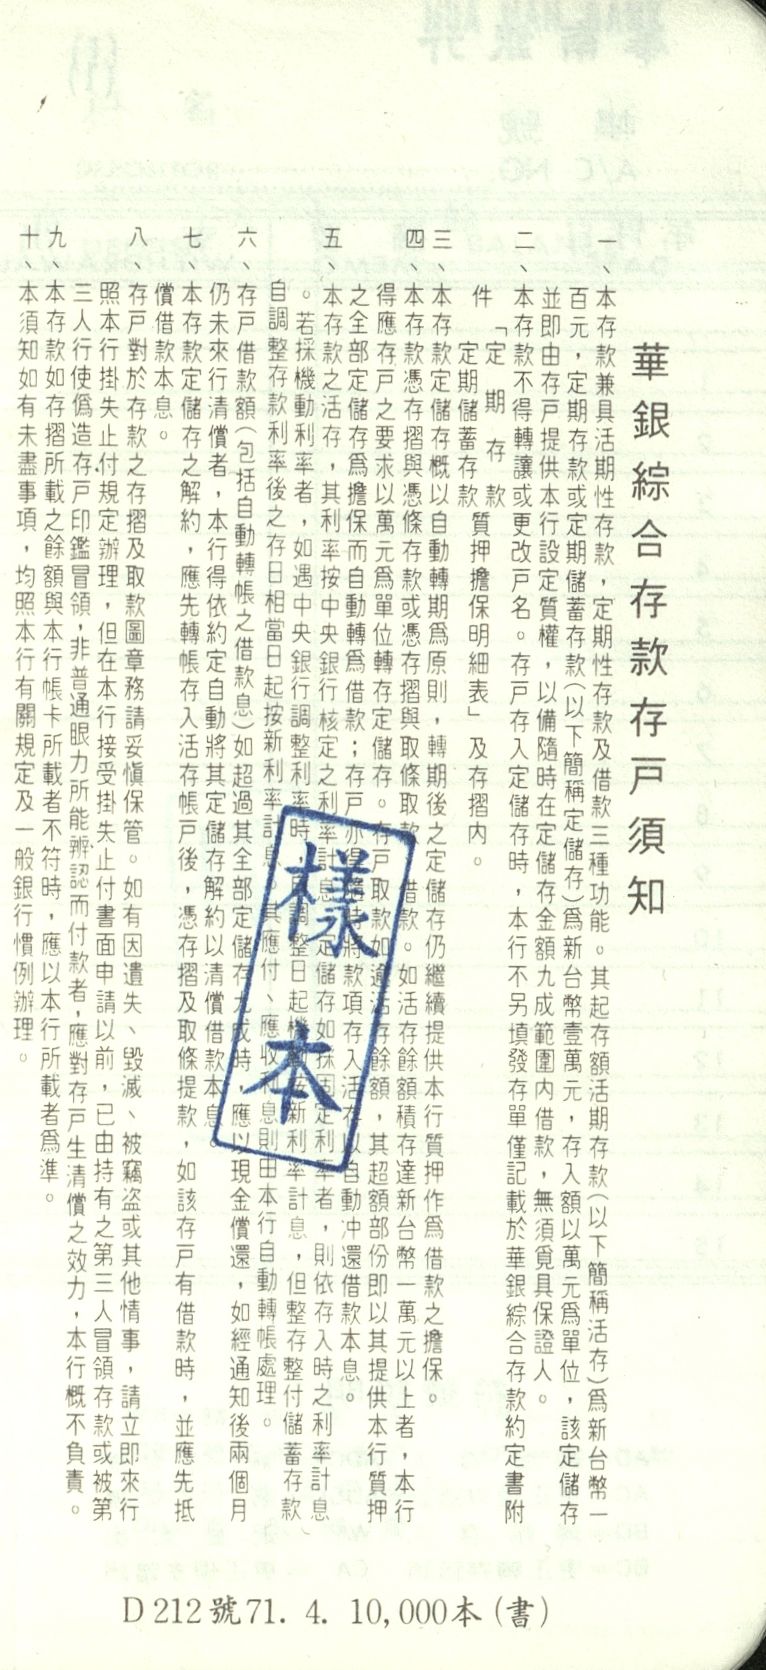 華銀綜合存款存戶須知
一、本存款兼具活期性存款，定期性存款及借款三種功能。其起存額活期存款(以下簡稱活存)爲新台幣一
百元，定期存款或定期儲蓄存款(以下簡稱定儲存)爲新台幣壹萬元，存入額以萬元爲單位，該定儲存
並即由存戶提供本行設定質權，以備隨時在定儲存金額九成範圍內借款，無須覓具保證人。
二、本存款不得轉讓或更改戶名。存戶存入定儲存時，本行不另填發存單僅記載於華銀綜合存款約定書附
件「定期存款
定期儲蓄存款質押擔保明細表」及存摺內。
三、本存款定儲存概以自動轉期爲原則，轉期後之定儲存仍繼續提供本行質押作爲借款之擔保。
四、本存款憑存摺與憑條存款或憑存摺與取條取款、借款。如活存餘額積存達新台幣一萬元以上者，本行
得應存戶之要求以萬元爲單位轉存定儲存。存戶取款如逾活存餘額，其超額部份即以其提供本行質押
之全部定儲存爲擔保而自動轉爲借款；存戶亦得隨時將款項存入活存以自動冲還借款本息。
五、本存款之活存，其利率按中央銀行核定之利率計息，定儲存如採固定利率者，則依存入時之利率計息
。若採機動利率者，如遇中央銀行調整利率時，調整日起機動按新利率計息，但整存整付儲蓄存款
自調整存款利率後之存日相當日起按新利率計息。其應付、應收利息則由本行自動轉帳處理。
六、存戶借款額(包括自動轉帳之借款息)如超過其全部定儲存九成時，應以現金償還，如經通知後兩個月
仍未來行清償者，本行得依約定自動將其定儲存解約以清償借款本息。
七、本存款定儲存之解約，應先轉帳存入活存帳戶後，憑存摺及取條提款，如該存戶有借款時，並應先抵
償借款本息。
八、存戶對於存款之存摺及取款圖章務請妥愼保管。如有因遺失、毀滅、被竊盜或其他情事，請立即來行
照本行掛失止付規定辦理，但在本行接受掛失止付書面申請以前，已由持有之第三人冒領存款或被第
三人行使僞造存戶印鑑冒領，非普通眼力所能辨認而付款者，應對存戶生清償之效力，本行概不負責。
九、本存款如存摺所載之餘額與本行帳卡所載者不符時，應以本行所載者爲準。
十、本須知如有未盡事項，均照本行有關規定及一般銀行慣例辦理。
樣本
D212號71. 4. 10,000本(書)